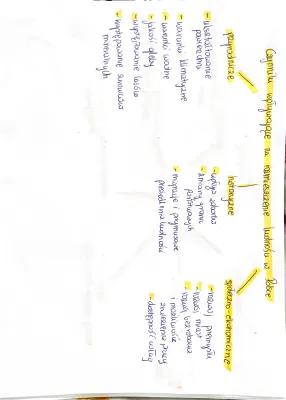 Czynniki wpływające na rozmieszczenie ludności w Polsce
przyrodnicze
- ukształtowanie
powierzchni
- warunki klimatyczne
- warunki wodne
- jakość gleby
- występowanie lasów
- występowanie surowców
mineralnych
historyczne
- wpływ zaborów
- zmiany granic
państwowych
- migracje i przymusowe
przesiedlenia ludności
społeczno-ekonomiczne
- rozwój przemysłu
- rozwój miast
- bezrobocie
i możliwość
znalezienia pracy
- dostępność usług